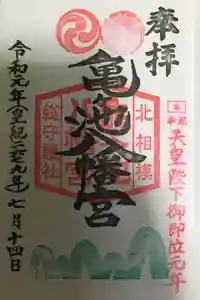 奉拝
天皇陛下御即位元年
北相模
亀池八幡宮
総守護社
令和元年(皇紀二六七九年)七月十四日